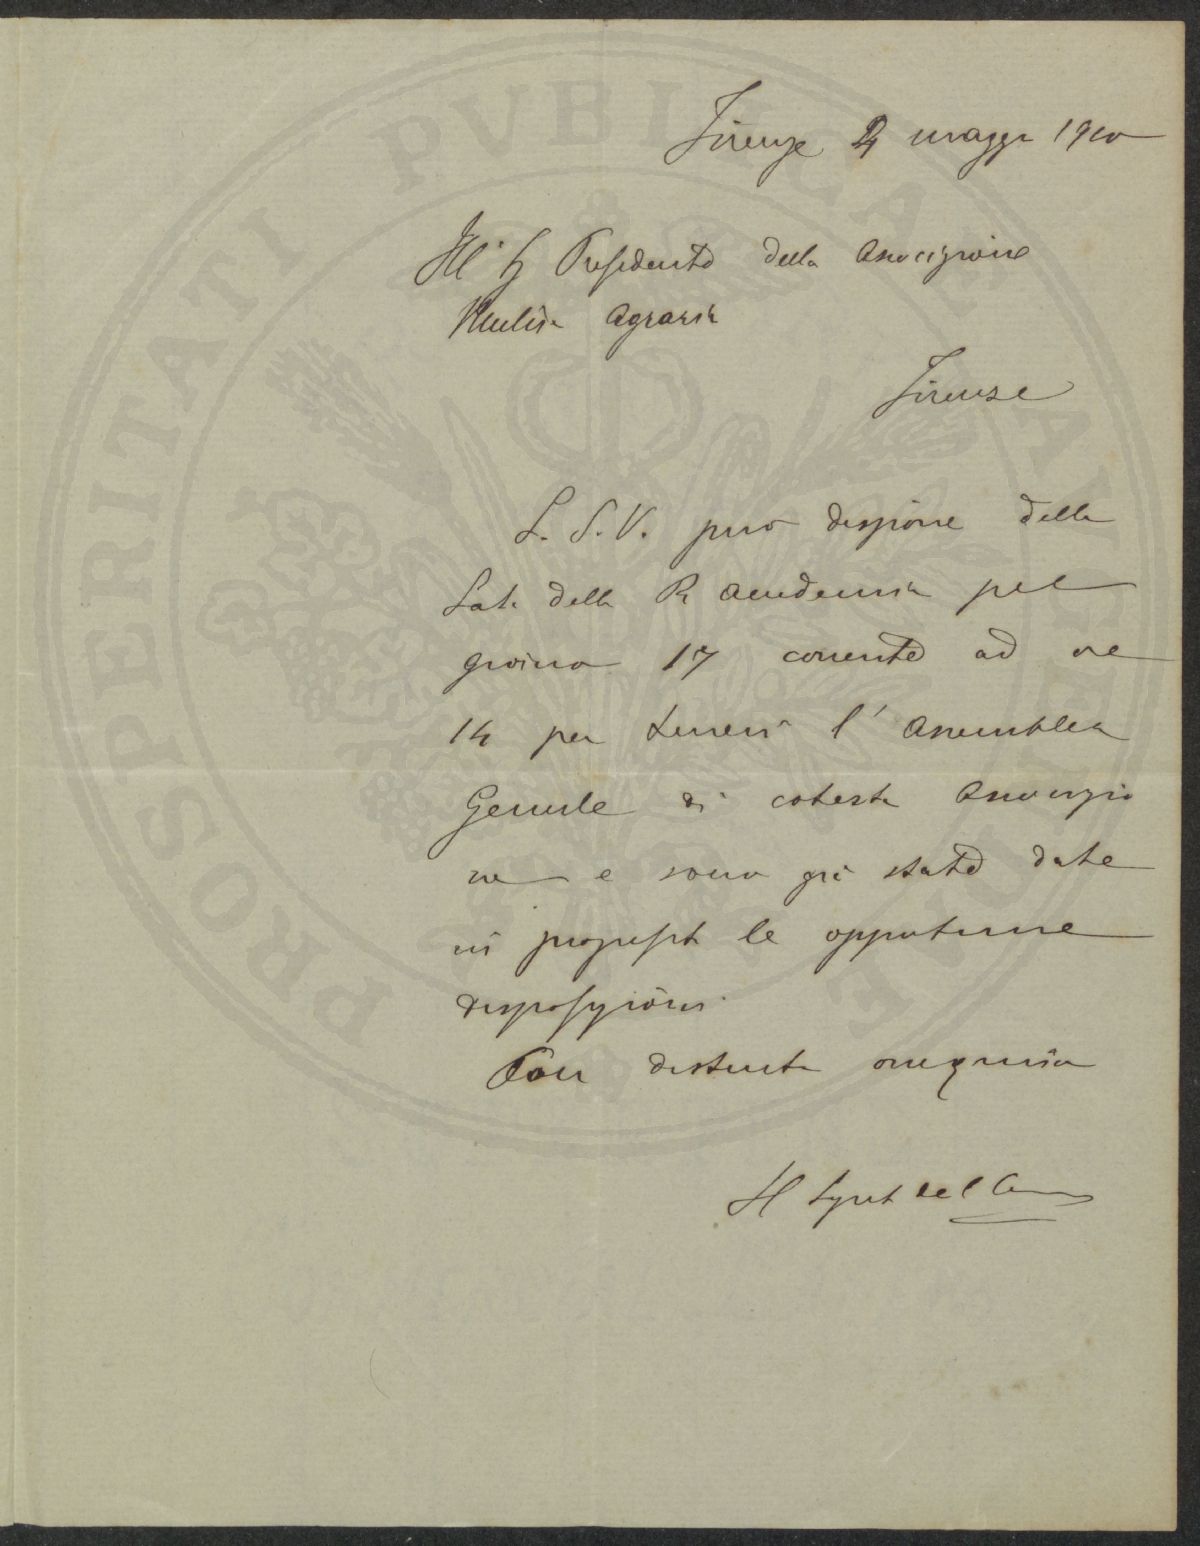 PROSPERITATI PVBLICAE AVGENDAE
Firenze 4 maggio 1910
Ill. Sg Presidente della Associazione
Agraria
Firenze
L. S. V. può disporre della
Sala della R Accademia pel
giorno 17 corrente ad ore
14 per tenersi l'Assemblea
Generale di cotesta Associazio
ne e sono già state date
in proposito le opportune
disposizioni.
Con distinta ossequio
Il Segret del